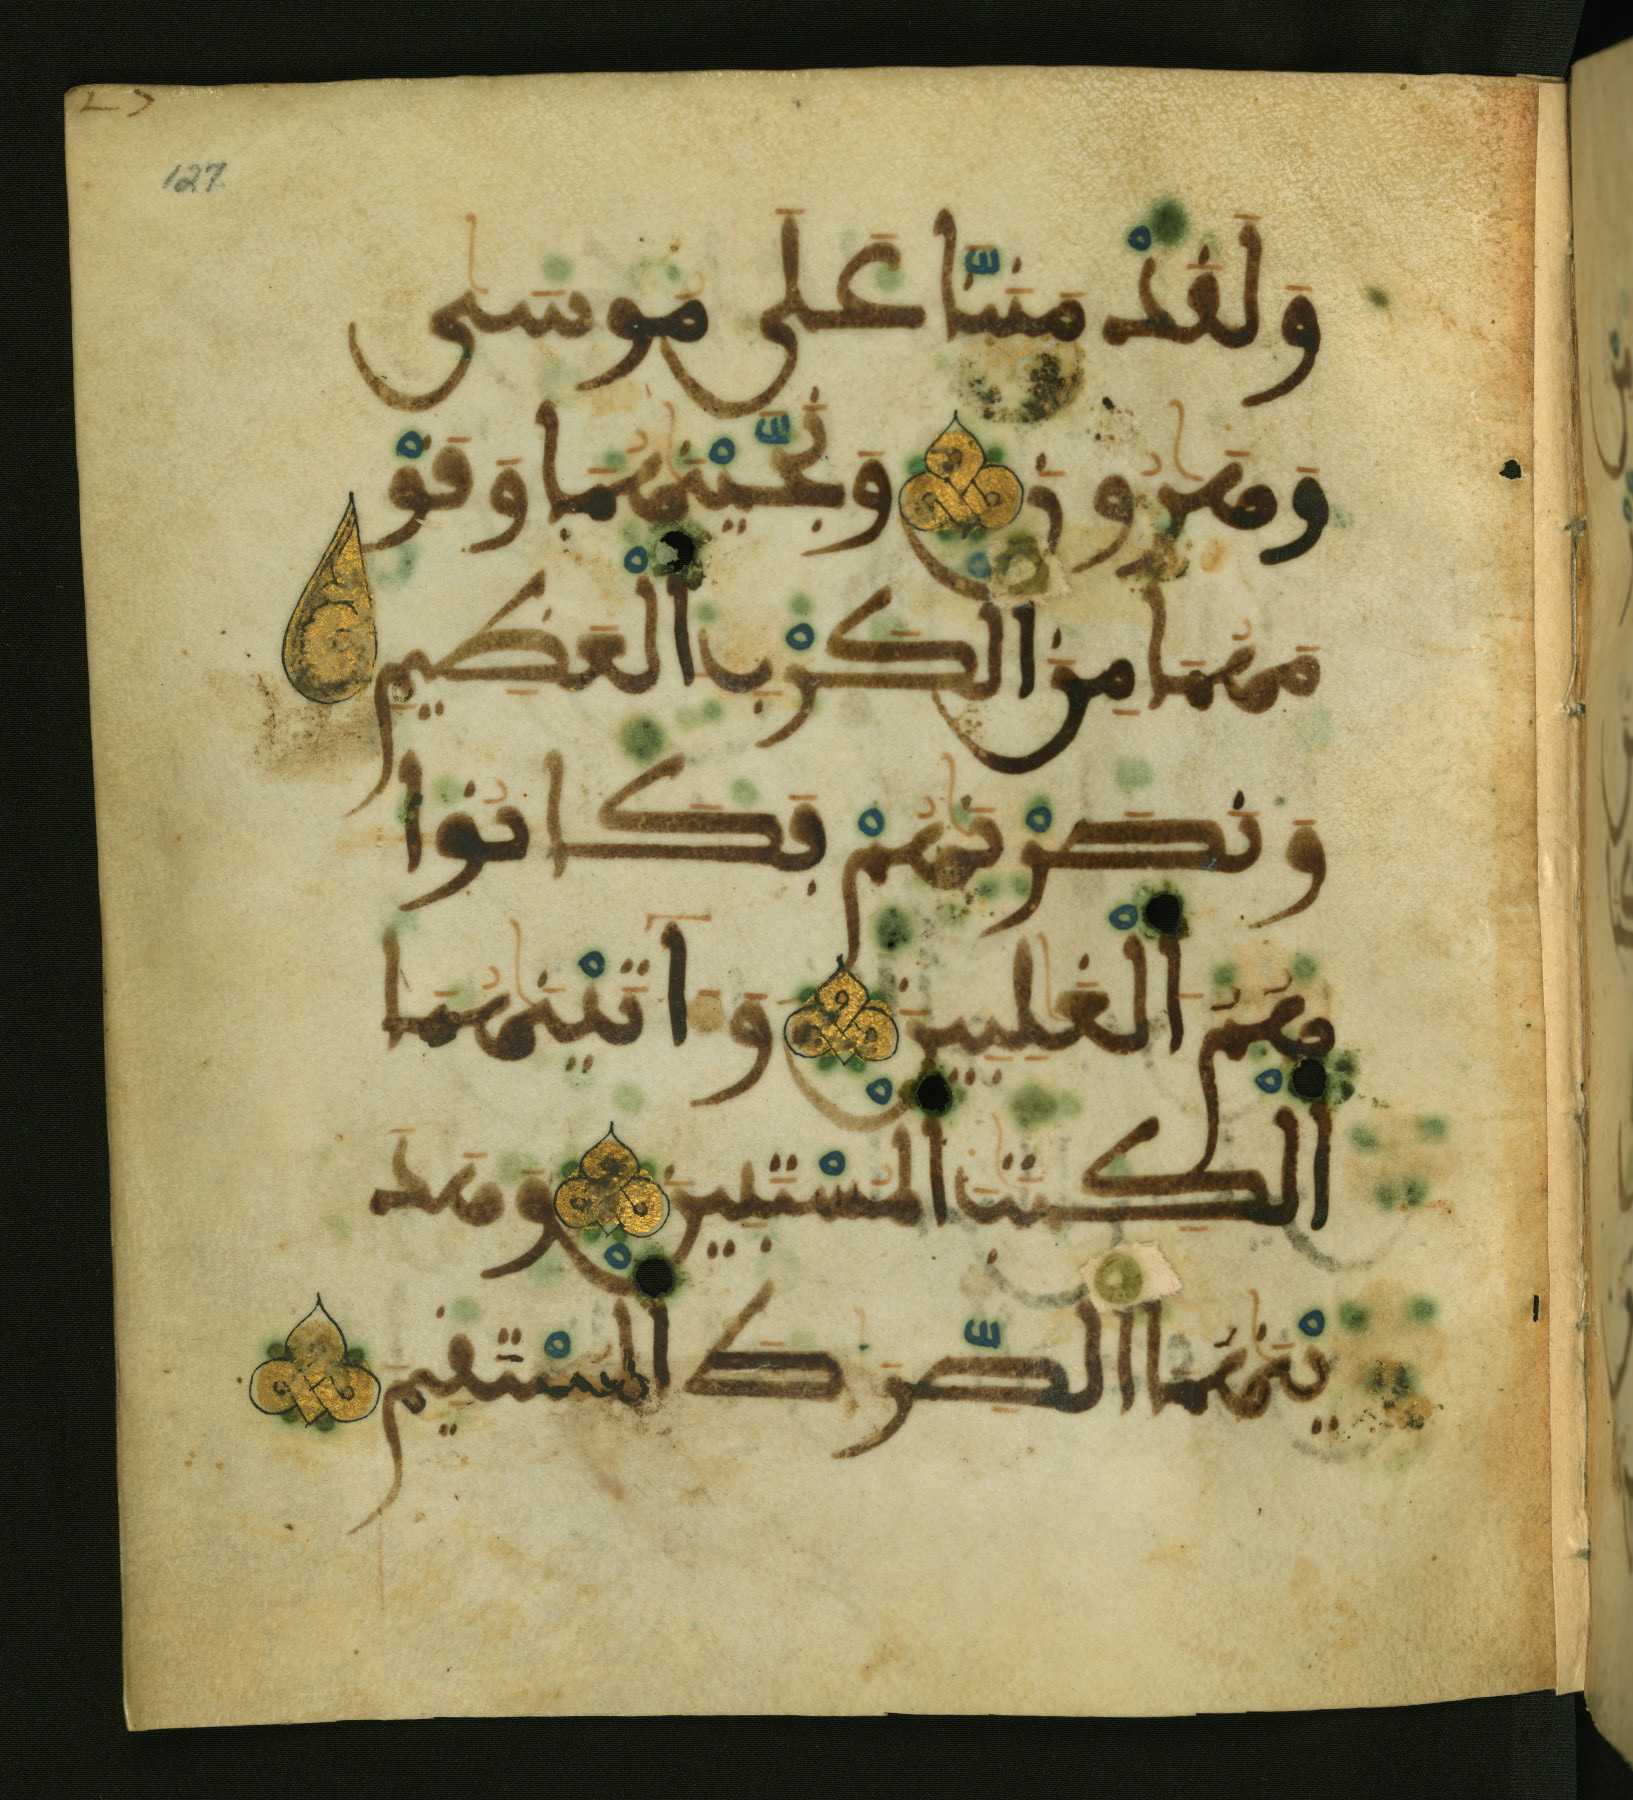 127
وَلَقَدْ مَنَنَّا عَلَىٰ مُوسَىٰ
وَهَٰرُونَ وَنَجَّيْنَٰهُمَا وَقَوْ
مَهُمَا مِنَ الْكَرْبِ الْعَظِيمِ
وَنَصَرْنَٰهُمْ فَكَانُوا
هُمُ الْغَٰلِبِينَ وَءَاتَيْنَٰهُمَا
الْكِتَٰبَ الْمُسْتَبِينَ وَهَدَ
يْنَٰهُمَا الصِّرَٰطَ الْمُسْتَقِيمَ